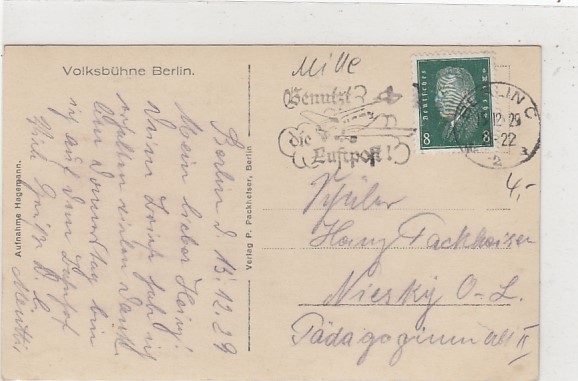 Volksbühne Berlin.
Mitte
Berlin d. 13.12.29
Mein lieber Heinz!
Deine habe ich
erhalten vielen Dank.
Am Donnerstag bin
ich auf dem
Viele Grüße D. l.
Mutter
Aufnahme Hagemann.
Verlag P. Packheiser, Berlin
Benutzt
die
Luftpost!
Deutsches Reich
8 8
BERLIN C
12.29
-22
2
4,-
Schüler
Heinz Packheiser
Niesky O-L.
Pädagogium